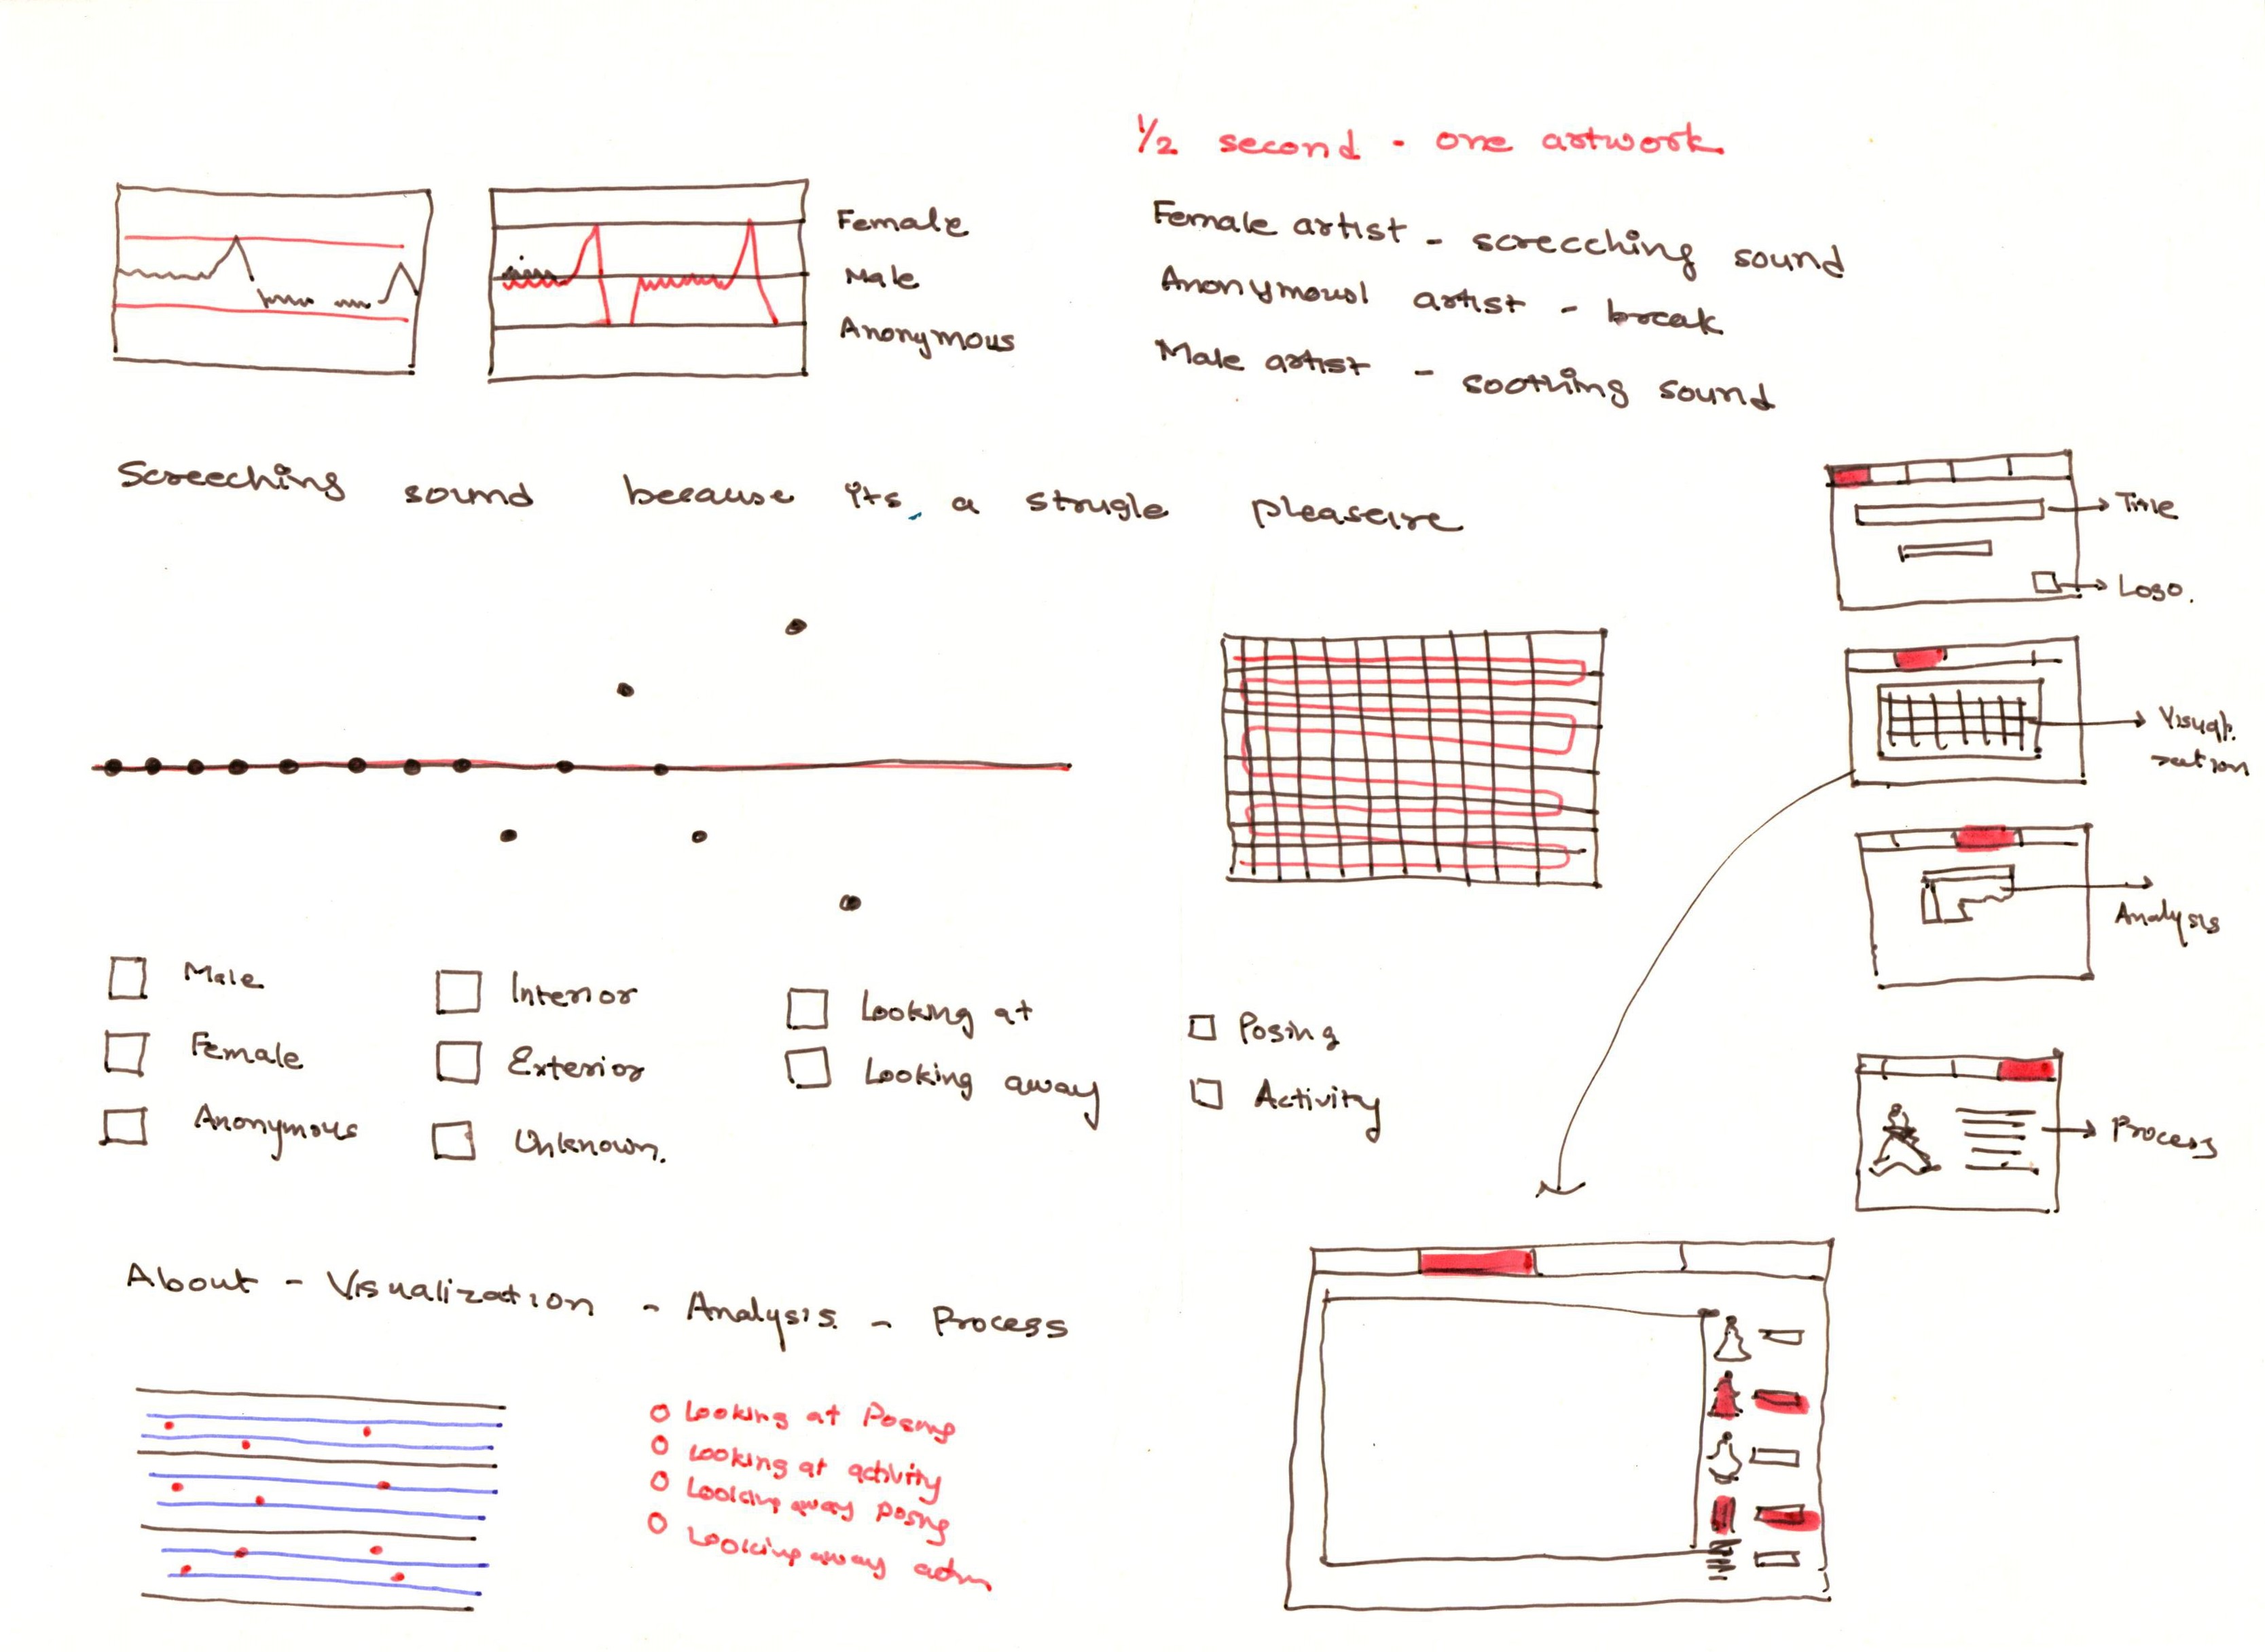 1/2 second - one artwork
Female
Male
Anonymous
Female artist - screeching sound
Anonymous artist - break
Male artist - soothing sound
Screeching sound because its a strugle pleaseire
Title
Logo.
Visuali-
zation
Analysis
Process
Male
Female
Anonymous
Interior
Exterior
Unknown.
Looking at
Looking away
Posing
Activity
About - Visualization - Analysis - Process
Looking at Posing
Looking at activity
Looking away posing
Looking away